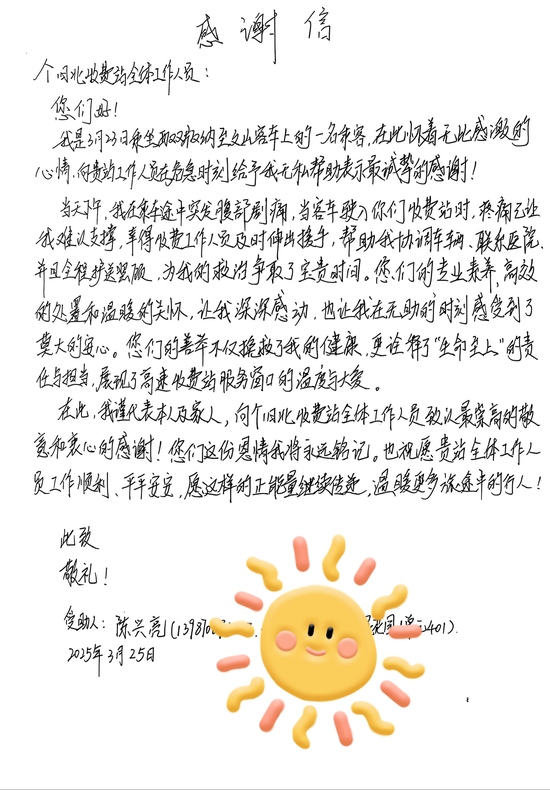 感谢信
个旧北收费站全体工作人员：
您们好！
我是3月23日乘坐西双版纳至文山客车上的一名乘客，在此怀着无比感激的
心情，向贵站工作人员在危急时刻给予我无私帮助表示最诚挚的感谢！
当天下午，我在乘车途中突发腹部剧痛，当客车驶入你们收费站时，疼痛已让
我难以支撑，幸得收费工作人员及时伸出援手，帮助我协调车辆、联系医院、
并且全程护送照顾，为我的救治争取了宝贵时间。您们的专业素养、高效
的处置和温暖的关怀，让我深深感动，也让我在无助的时刻感受到了
莫大的安心。您们的善举不仅挽救了我的健康，更诠释了“生命至上”的责
任与担当，展现了高速收费站服务窗口的温度与大爱。
在此，我谨代表本人及家人，向个旧北收费站全体工作人员致以最崇高的敬
意和衷心的感谢！您们这份恩情我将永远铭记。也祝愿贵站全体工作人
员工作顺利、平平安安，愿这样的正能量继续传递，温暖更多旅途中的行人！
此致
敬礼！
受助人：陈兴亮(13987 401).
2025年3月25日